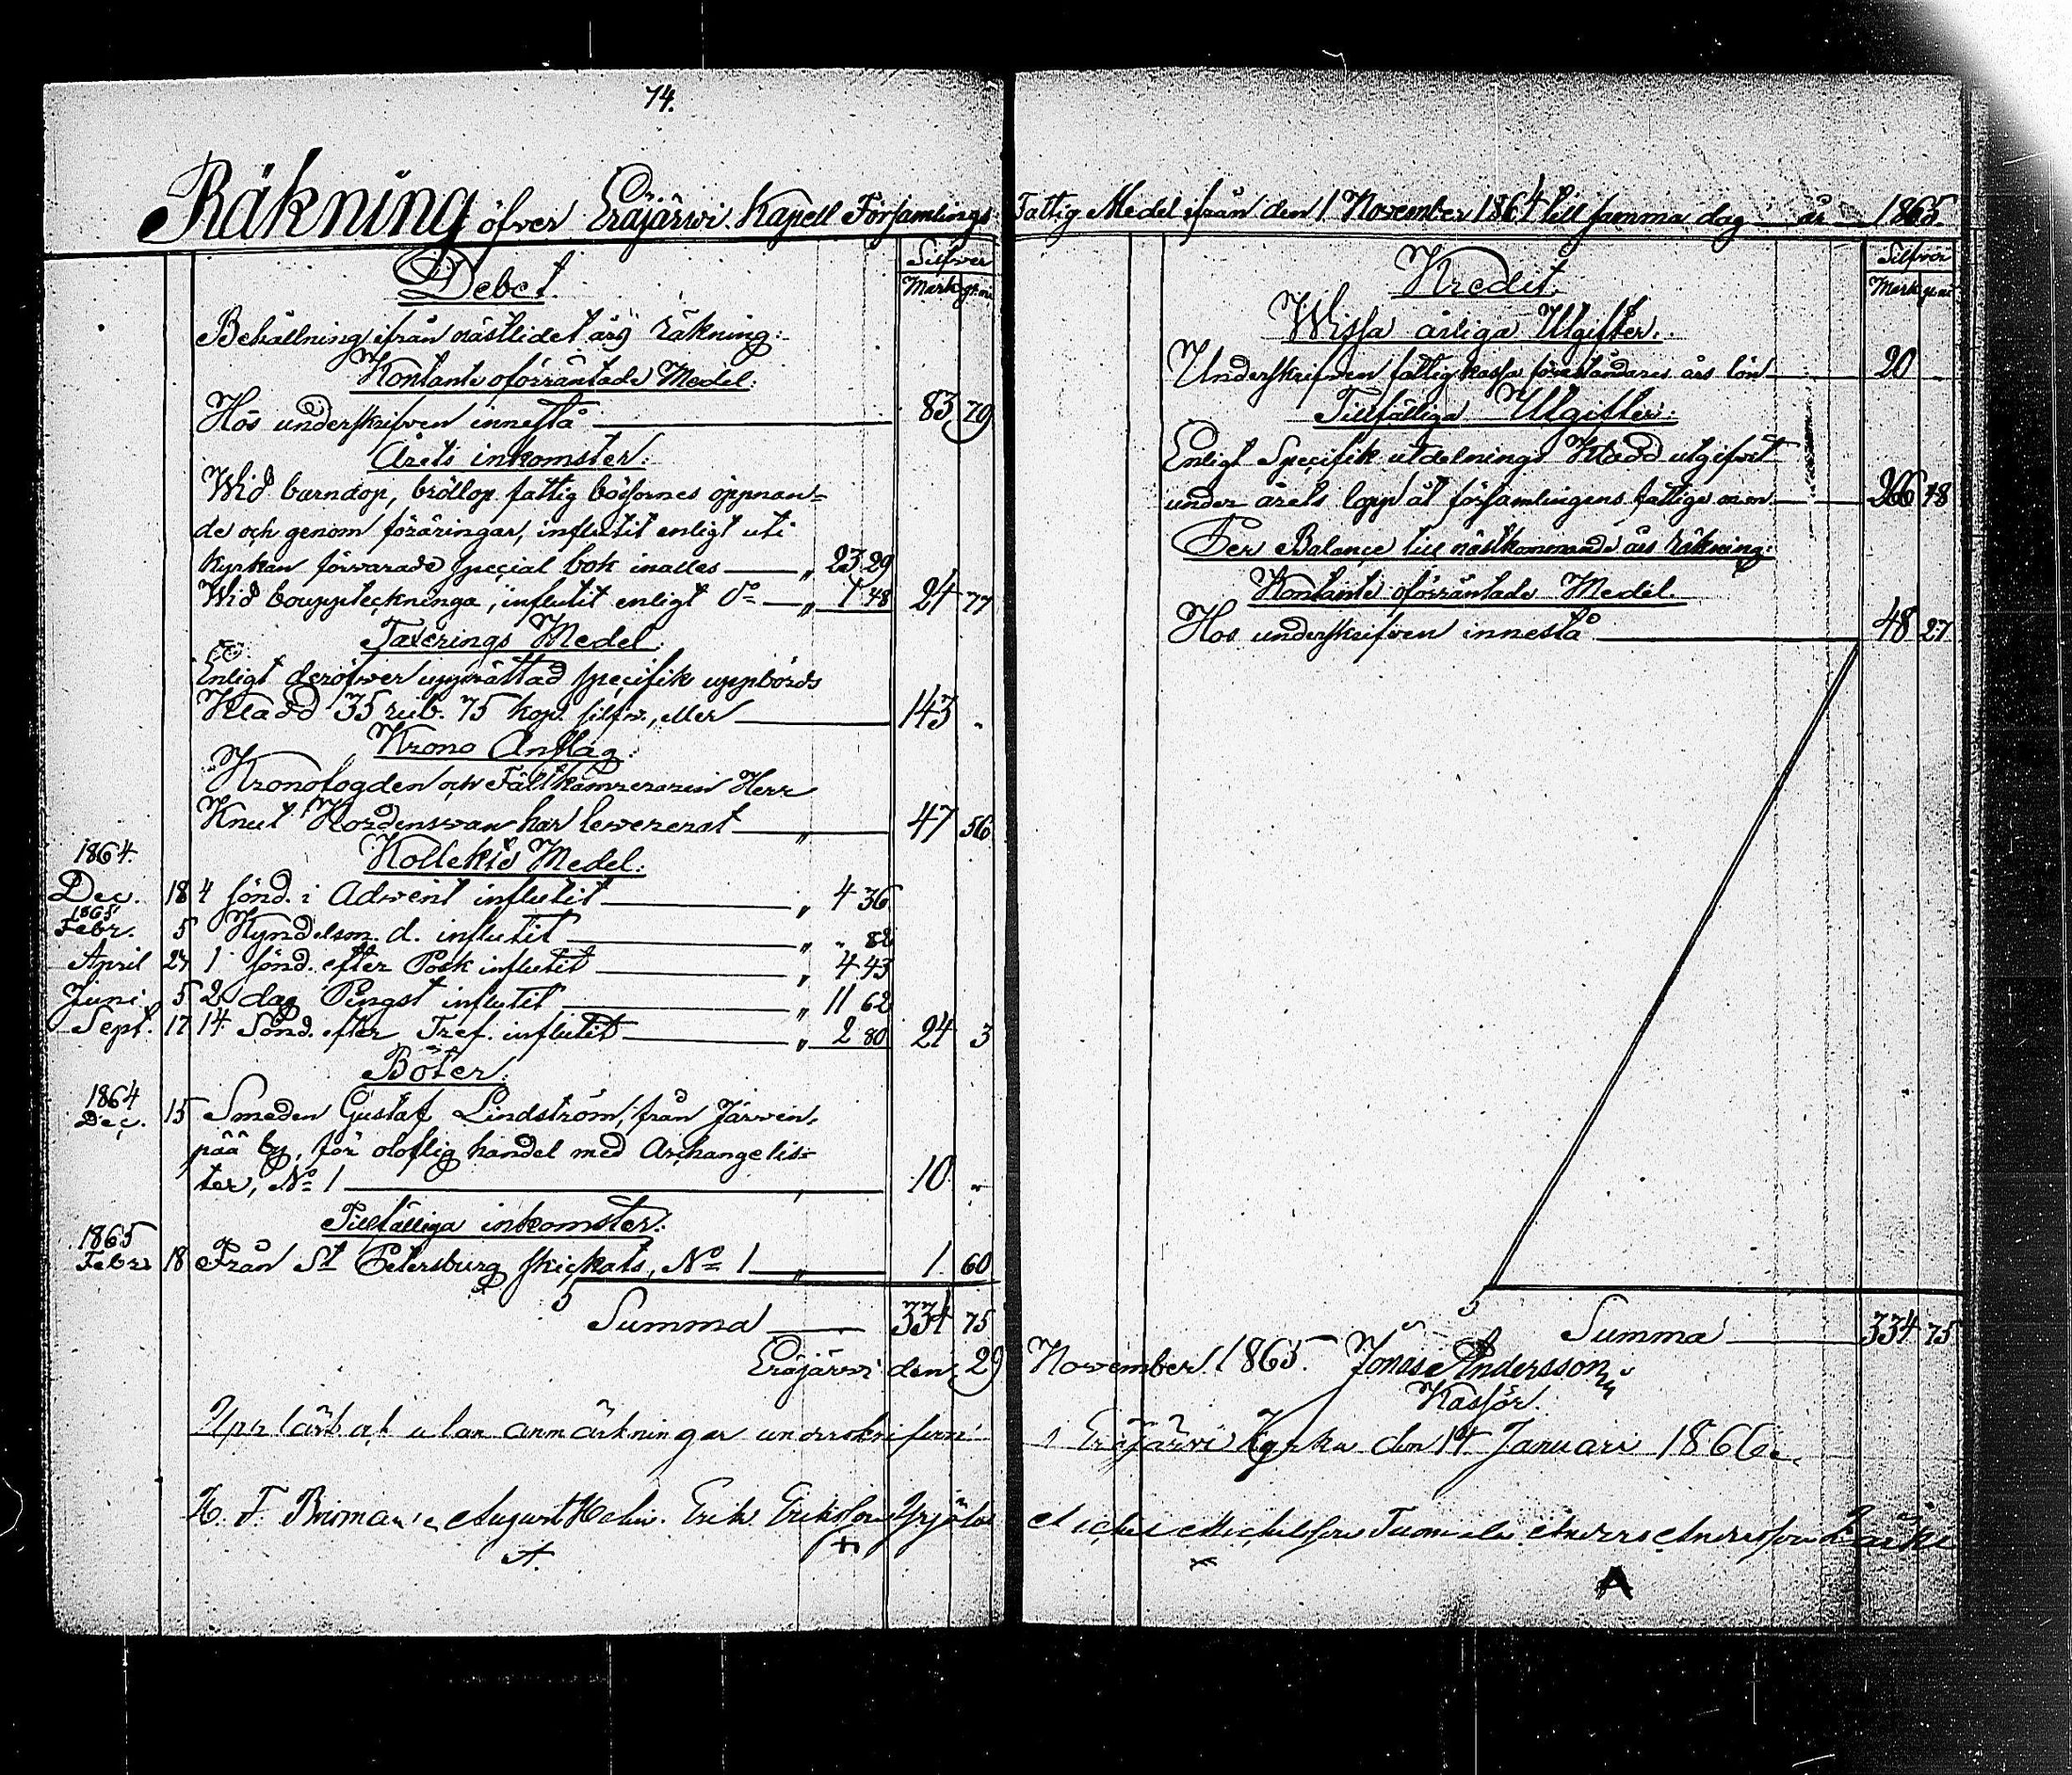 74.
Räkning öfver Eräjärwi Kapell Församlings Fattig Medel ifrån den 1 November 1864 till samma dag år 1865.
Debet.
Silfver
Mark p:ni
Behållning ifrån nästlidet års räkning:
Kontante oförräntade Medel:
Hos underskrifven innestå 83 79
Årets inkomster:
Wid barndop, bröllop fattig bössornes öppnan=
de och genom föräringar, influtit enligt uti
Kyrkan förvarade special bok inalles „ 23 29
Wid bouppteckninga, influtit enligt do „ 1 48 24 77
Taxerings Medel:
Enligt deröfwer upprättad specifik uppbörds
Kladd 35 rub. 75 kop. silfw., eller 143 „
Krono Anslag:
Kronofogden och Fältkamreraren Herr
Knut Nordenswan har lewererat „ 47 56
Kollekts Medel:
1864.
Dec. 18 4 sönd. i Adwent influtit „ 4 36
1865
Febr. 5 Kyndelsm. d. influtit „ „ 82
April 23 1 sönd. efter Påsk influtit „ 4 43
Juni 5 2 dag Pingst influtit „ 11 62
Sept. 17 14 Sönd. efter Tref. influtit „ 2 80 24 3
Böter:
1864
Dec. 15 Smeden Gustaf Lindström, från Järwen,
pää by, för oloflig handel med Archangelis=
ter, No 1 10 „
Tillfälliga inkomster:
1865
Febr 18 Från St Petersburg skickats, No 1 „ 1 60
Summa 334 75
Kredit.
Silfver
Mark p:ni
Wissa årliga Utgifter.
Underskrifven fattigkassa föreståndares års lön 20 „
Tillfälliga Utgifter:
Enligt Specifik utdelnings Kladd utgifvit
under årets lopp åt församlingens fattige 266 48
Per Balance till nästkommande års räkning:
Kontante oförräntade Medel.
Hos underskrifven innestå 48 27
Summa 334 75
Eräjärwi den 29 November 1865. Jonas Andersson
Kassör.
utan anmärkningar underskrifven i Eräjärvi Kyrka den 14 Januari 1866.
K. F. August Helin. Erik Eriksson Yrjölä Michel Michelsson Tuomala Anders Andersson
A